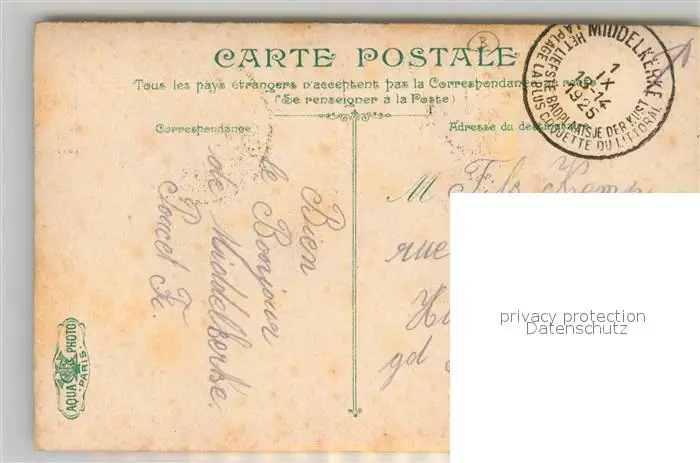 CARTE POSTALE
Tous les pays étrangers n'acceptent pas la Correspondance au recto
(Se renseigner à la Poste)
Correspondance
Adresse du destinataire
MIDDELKERKE
1
IX
13-14
1925
HET LIEFSTE BADPLAATSJE DER KUST
LA PLAGE LA PLUS COQUETTE DU LITTORAL
B
Bien
le Bonjour
de Middelkerke.
M Fils
rue
gd
AQUA PHOTO
PARIS
privacy protection
Datenschutz